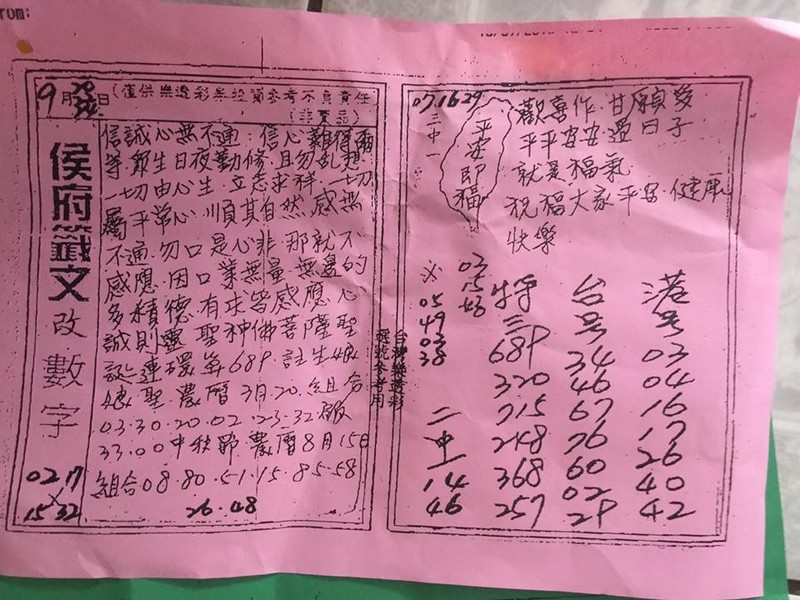 rom:
9月 日
(僅供樂透彩券投質參考不負責任
(非賣品)
侯府籤文
改數字
02 17
×
15 32
信誠心無不通:信心難得爾
等眾生日夜勤修.且勿亂想
一切由心生.立志求祥.一切
屬平常心.順其自然.感無
不通.勿口是心非.那就不
感應.因口業無量.無邊的
多積德.有求皆感應.心
誠則靈.聖神佛菩薩聖
誕.連環每689.註生娘
娘聖.農曆3月20.組合
03.30.20.02.23.32.
33.00中秋節.農曆8月15日
組合08.80.51.15.85.58
26.48
台灣樂透彩
選號參考用
07.16.29
三中一
平安即福
歡喜作.甘願受
平平安安過日子
就是福氣
祝福大家平安.健康
快樂
※
05
49
03
38
二中一
14
46
特三
689
320
715
248
368
257
台号
34
46
67
76
60
02
29
港号
03
04
16
17
26
40
42